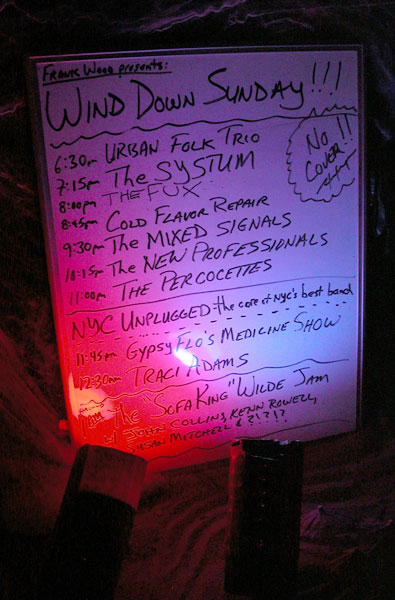 FRANK WOOD presents:
WIND DOWN SUNDAY!!!
No Cover!!
6:30pm URBAN FOLK TRIO
7:15pm The SYSTUM
8:00pm THE FUX
8:45pm COLD FLAVOR REPAIR
9:30pm The MIXED SIGNALS
10:15pm The NEW PROFESSIONALS
11:00pm THE PERCOCETTES
NYC UNPLUGGED the core of nyc's best band
11:45pm GYPSY FLO'S MEDICINE SHOW
12:30am TRACI ADAMS
1am The "SOFA KING" WILDE JAM
w/ JOHN COLLINS, KENN ROWELL,
SUSAN MITCHELL & ?!?!?